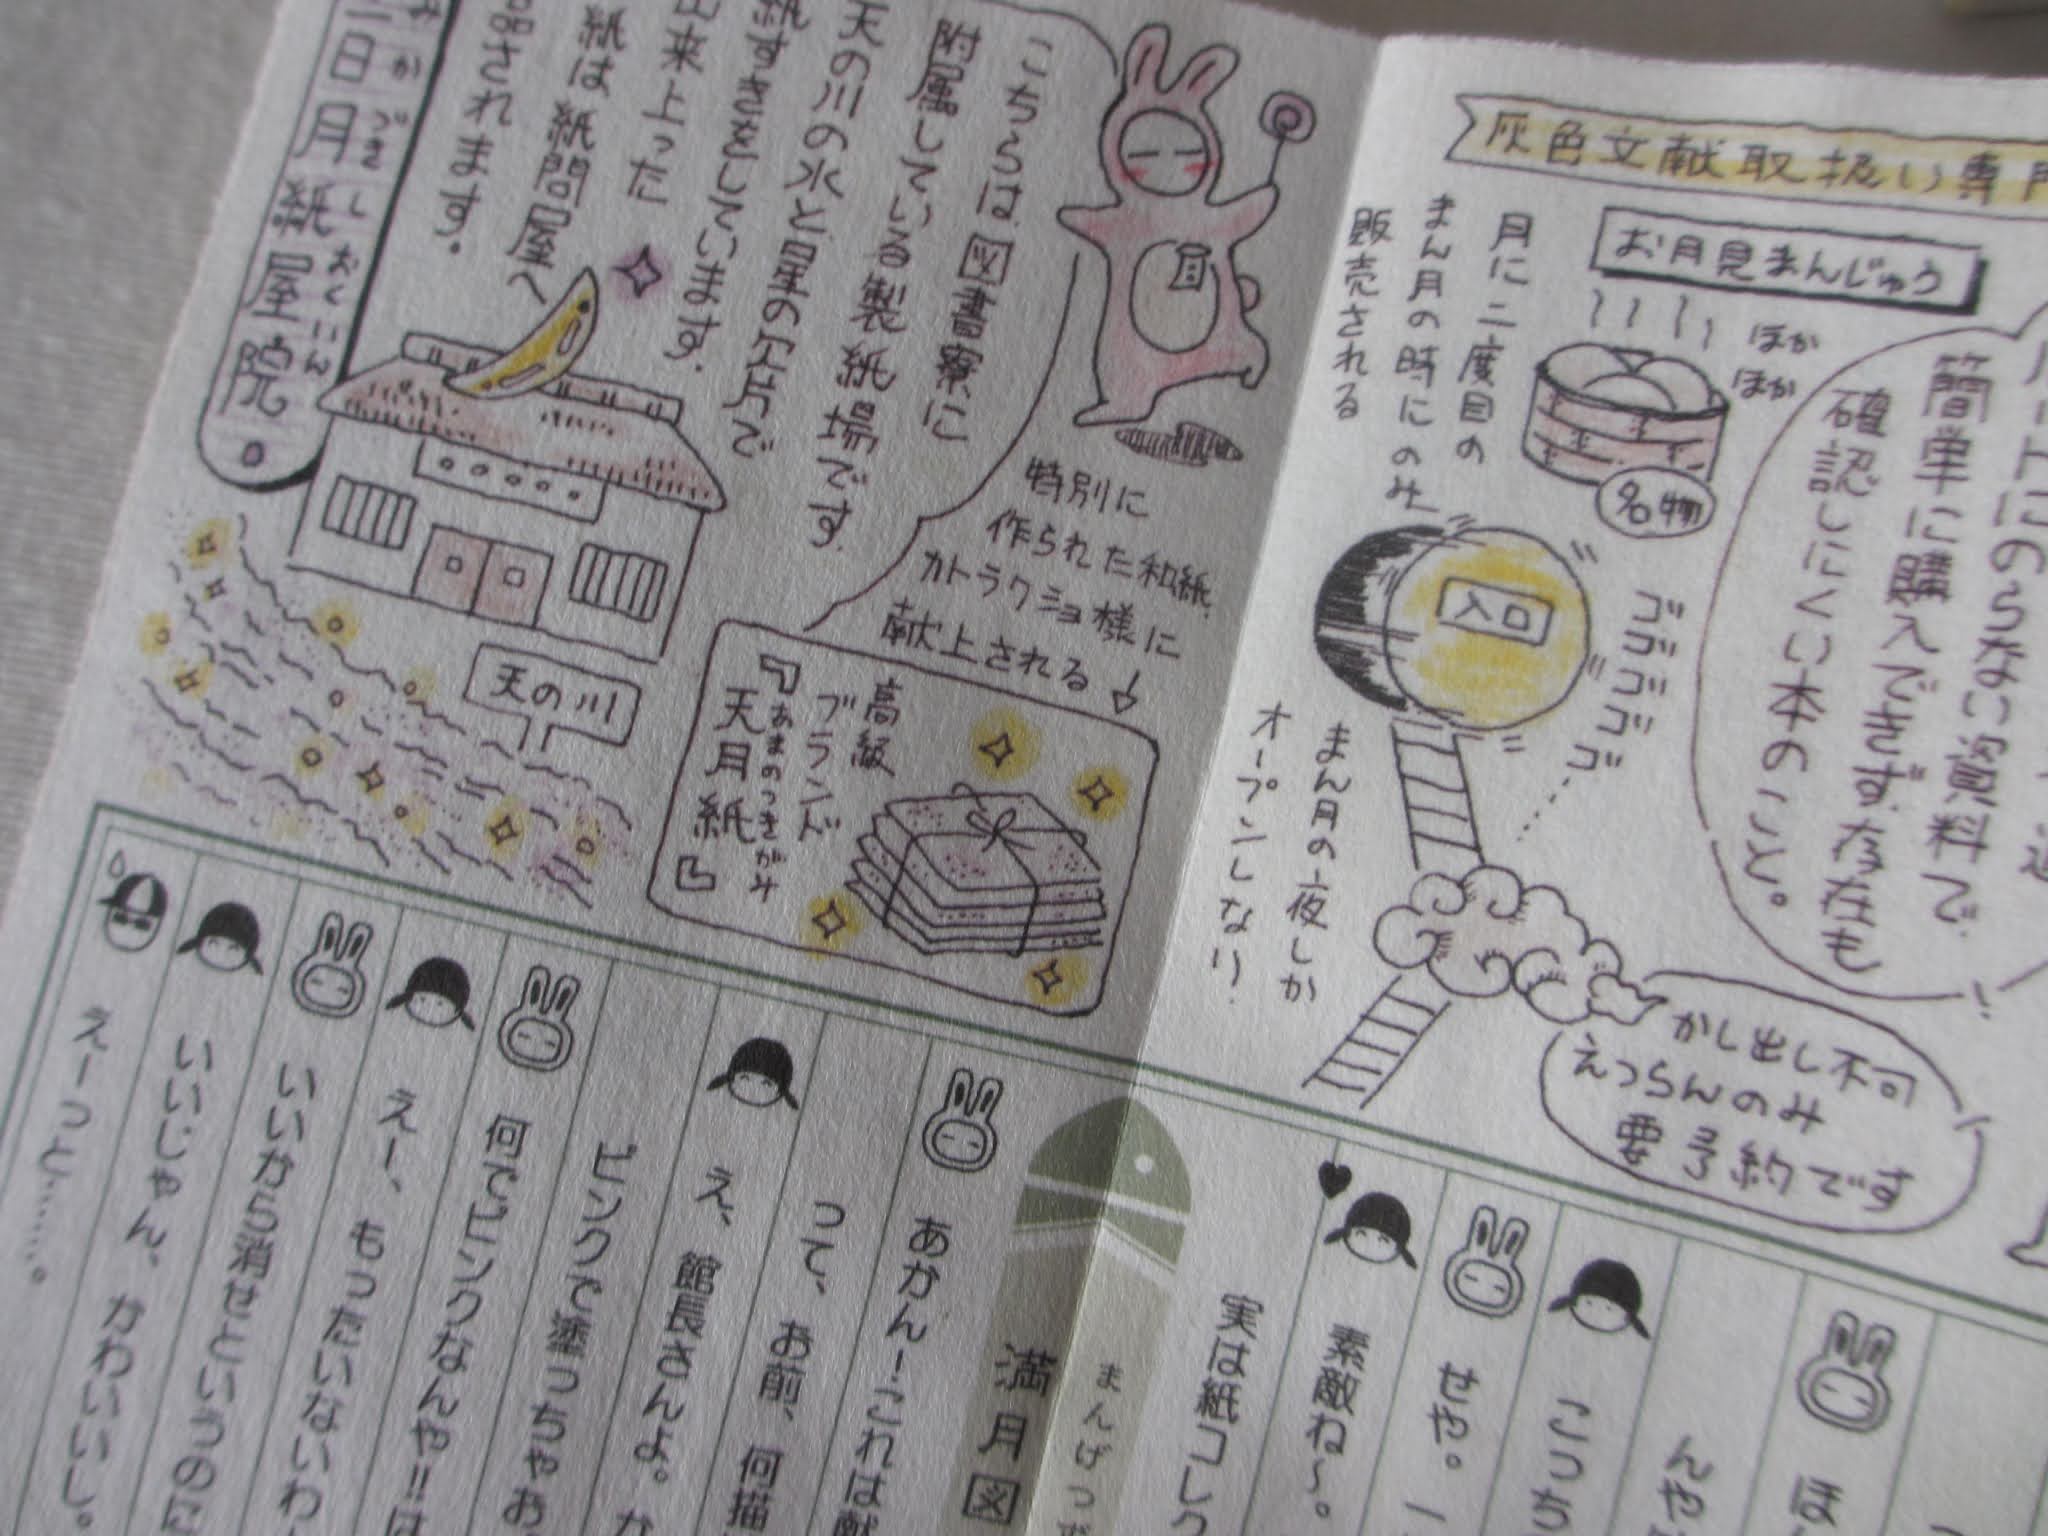 灰色文献取扱い専門
お月見まんじゅう
ほか
ほか
名物
月に二度目の
まん月の時にのみ
販売される
のらない資料で
簡単に購入できず、存在も
確認しにくい本のこと。
入口
ゴゴゴゴゴ
まん月の夜しか
オープンしない
かし出し不可
えつらんのみ
要予約です
こちらは図書寮に
附属している製紙場です。
天の川の水と星の欠片で
紙すきをしています。
出来上った
紙は紙問屋へ
品されます。
日月紙屋院
かづきしおくいん
天の川
特別に
作られた和紙
カトラクショ様に
献上される
高級
ブランド
『天月紙』
あまのつきがみ
ほ
んや
こっち
せや。
素敵ね〜。
実は紙コレク
まんげつ
満月図
あかん!これは献
って、お前、何描
え、館長さんよ。
ピンクで塗っちゃお
何でピンクなんや!!
えー、もったいないわ
いいから消せというのに
いいじゃん、かわいいし。
えーっと……。